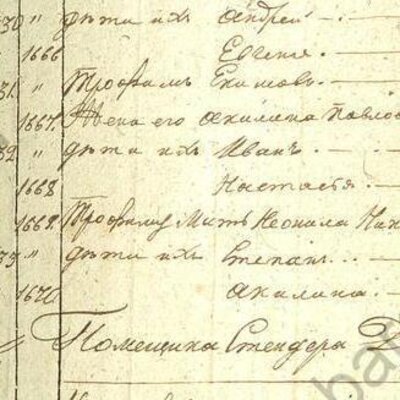 30 " дѣти ихъ Андрей -. -
1666 Евгенія. -
31. " Трофимъ Екимовъ. -
1667. Жена его Акилина Павлов
32 " дѣти ихъ Иванъ. -
1668 Настасія. -
1669. Трофиму Мать Неонила Ни
33 " дѣти ихъ Степанъ...
1670 Акилина. -
Помещика Стендера